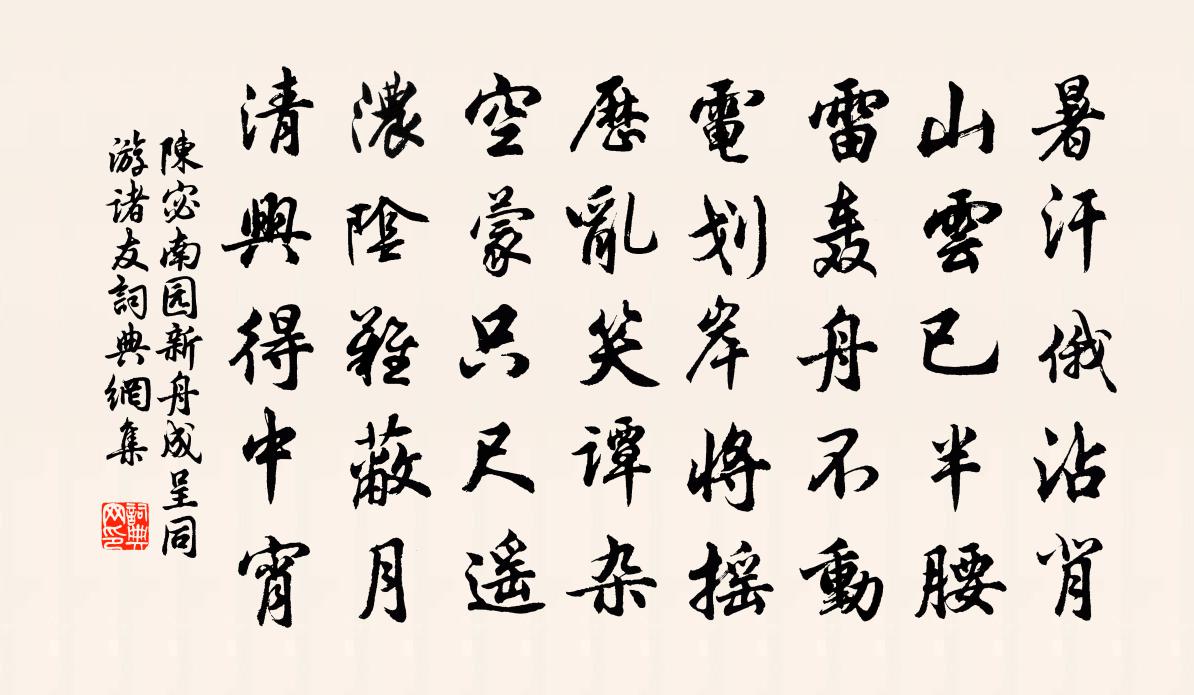 暑汗俄沾背
山雲已半腰
雷轰舟不動
電划岸将摇
歷亂笑譚杂
空蒙只尺遥
濃陰難蔽月
清興得中宵
陳宓南园新舟成呈同
游诸友詞典網集
詞典
网印